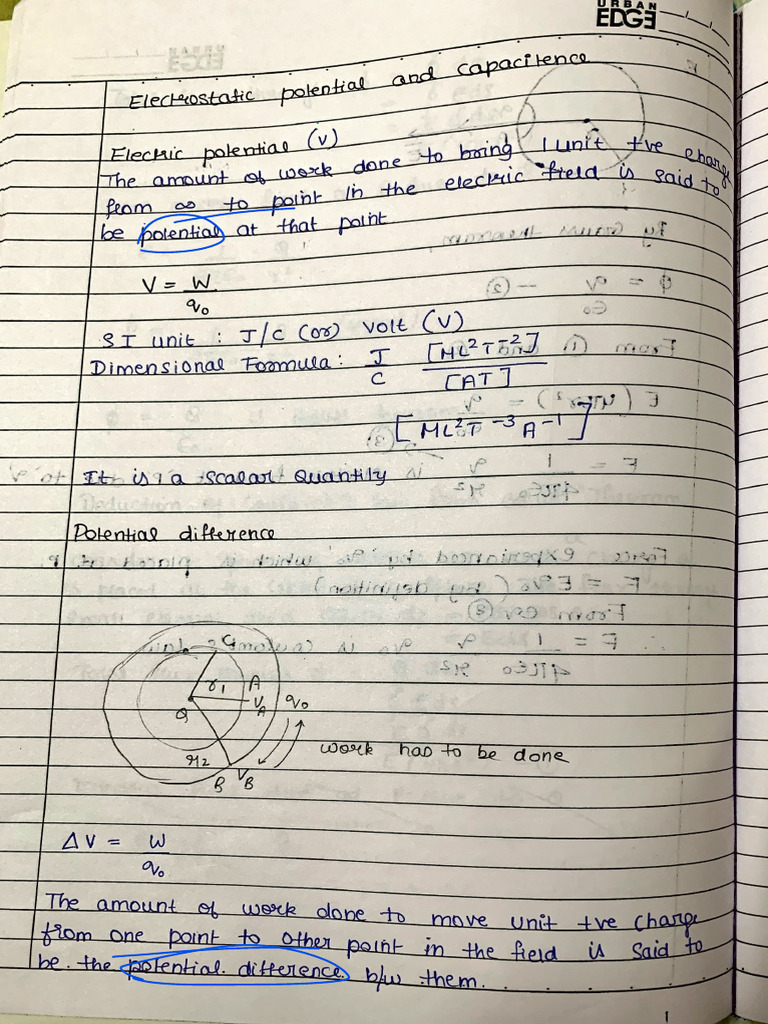 URBAN
EDGE
Electrostatic potential and capacitence
Electric potential (V)
The amount of work done to bring 1 unit +ve charge
from ∞ to point in the electric field is said to
be potential at that point.
V = W/q₀
SI unit : J/C (or) Volt (V)
Dimensional Formula: J/C [ML²T⁻²]/[AT]
[ML²T⁻³A⁻¹]
It is a scalar Quantity
Potential difference
C
r₁ A
Q V_A q₀
r₂ work has to be done
B V_B
ΔV = W/q₀
The amount of work done to move unit +ve charge
from one point to other point in the field is said to
be the potential difference b/w them.
1